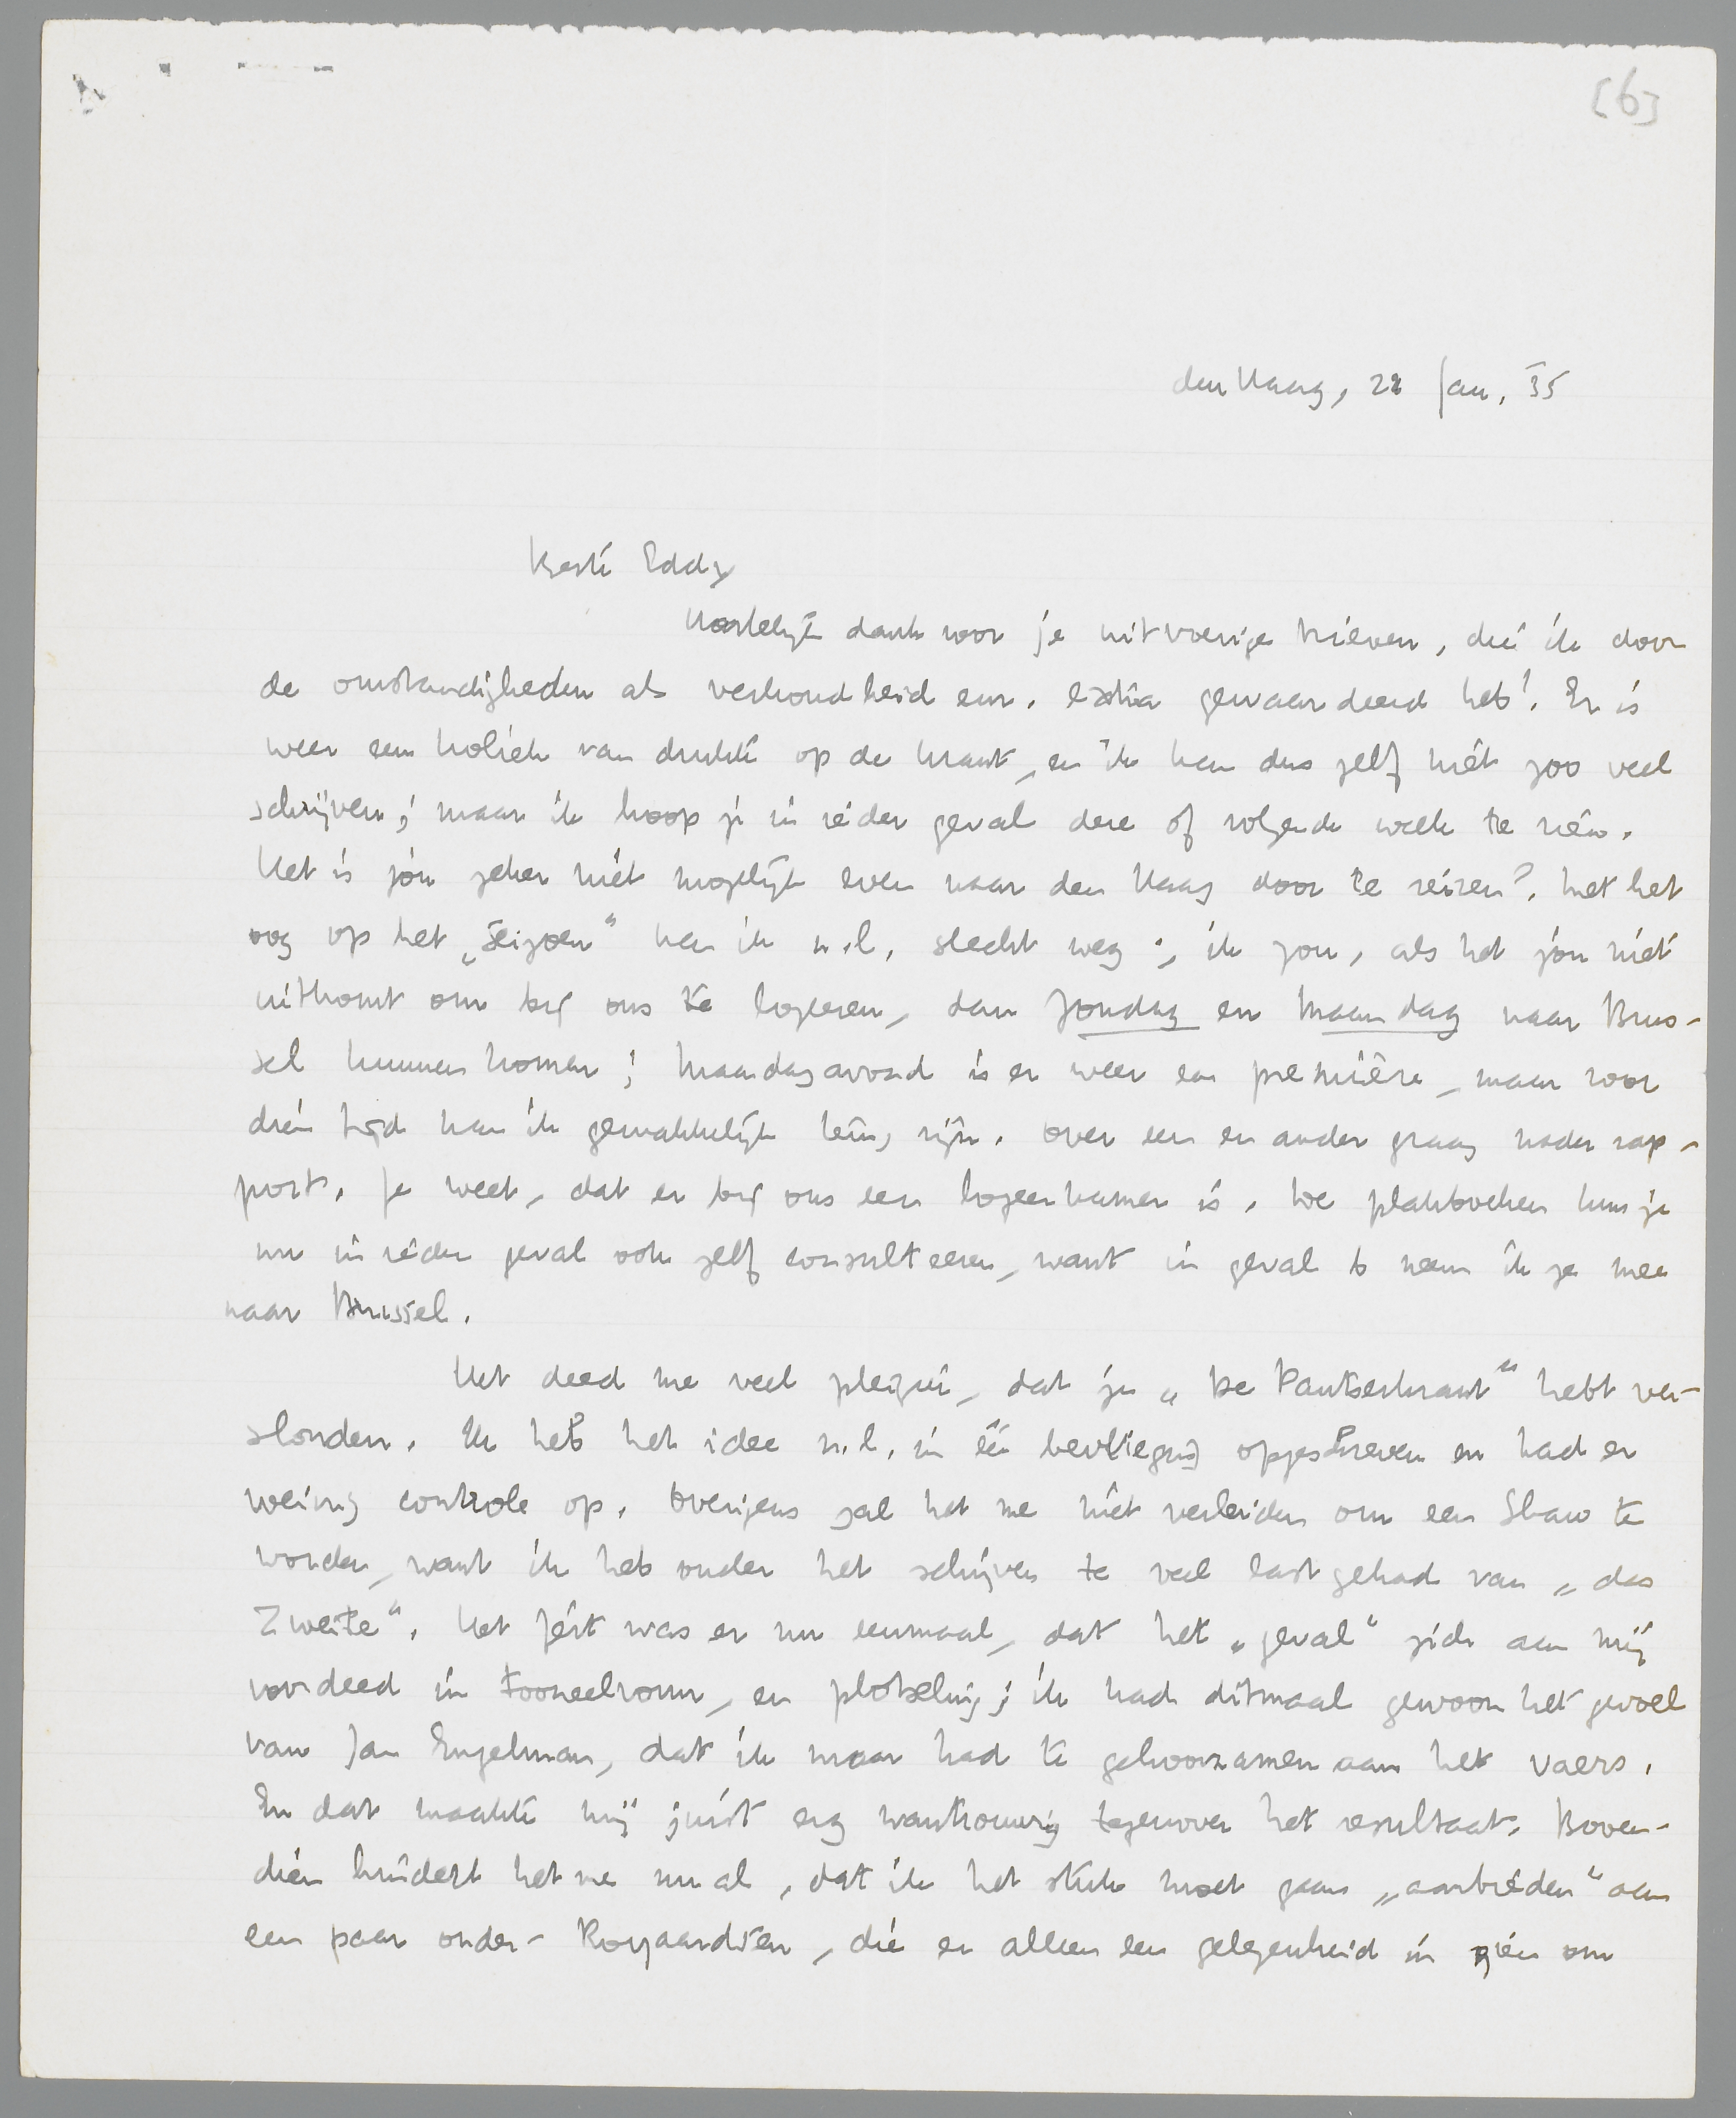 [6]
den Haag, 22 Jan. '35
Beste Eddy
Hartelijk dank voor je uitvoerige brieven, die ik door
de omstandigheden als verkoudheid enz. extra gewaardeerd heb! Er is
weer een koliek van drukte op de krant, en ik kan dus zelf niet zoo veel
schrijven; maar ik hoop je in ieder geval deze of volgende week te zien.
Het is jou zeker niet mogelijk even naar den Haag door te reizen? Met het
oog op het „seizoen" kan ik n.l. slecht weg; ik zou, als het jou niet
uitkomt om bij ons te logeeren, dan Zondag en Maandag naar Brus-
sel kunnen komen; Maandagavond is er weer een première, maar voor
dien tijd kan ik gemakkelijk terug zijn. Over een en ander graag nader rap-
port. Je weet, dat er bij ons een logeerkamer is. De plakboeken kun je
nu in ieder geval ook zelf consulteeren, want in geval b neem ik ze mee
naar Brussel.
Het deed me veel plezier, dat je „De Pantserkrant" hebt ver-
slonden. Ik heb het idee n.l. in één bevlieging opgeschreven en had er
weinig controle op. Overigens zal het me niet verleiden om een Shaw te
worden, want ik heb onder het schrijven te veel last gehad van „das
Zweite". Het feit was er nu eenmaal, dat het „geval" zich aan mij
voordeed in tooneelvorm, en plotseling; ik had ditmaal gewoon het gevoel
van Jan Engelman, dat ik maar had te gehoorzamen aan het vaers.
En dat maakte mij juist erg wantrouwig tegenover het resultaat. Boven-
dien hindert het me nu al, dat ik het stuk moet gaan „aanbieden" aan
een paar onder-Royaardsen, die er alleen een gelegenheid in zien om